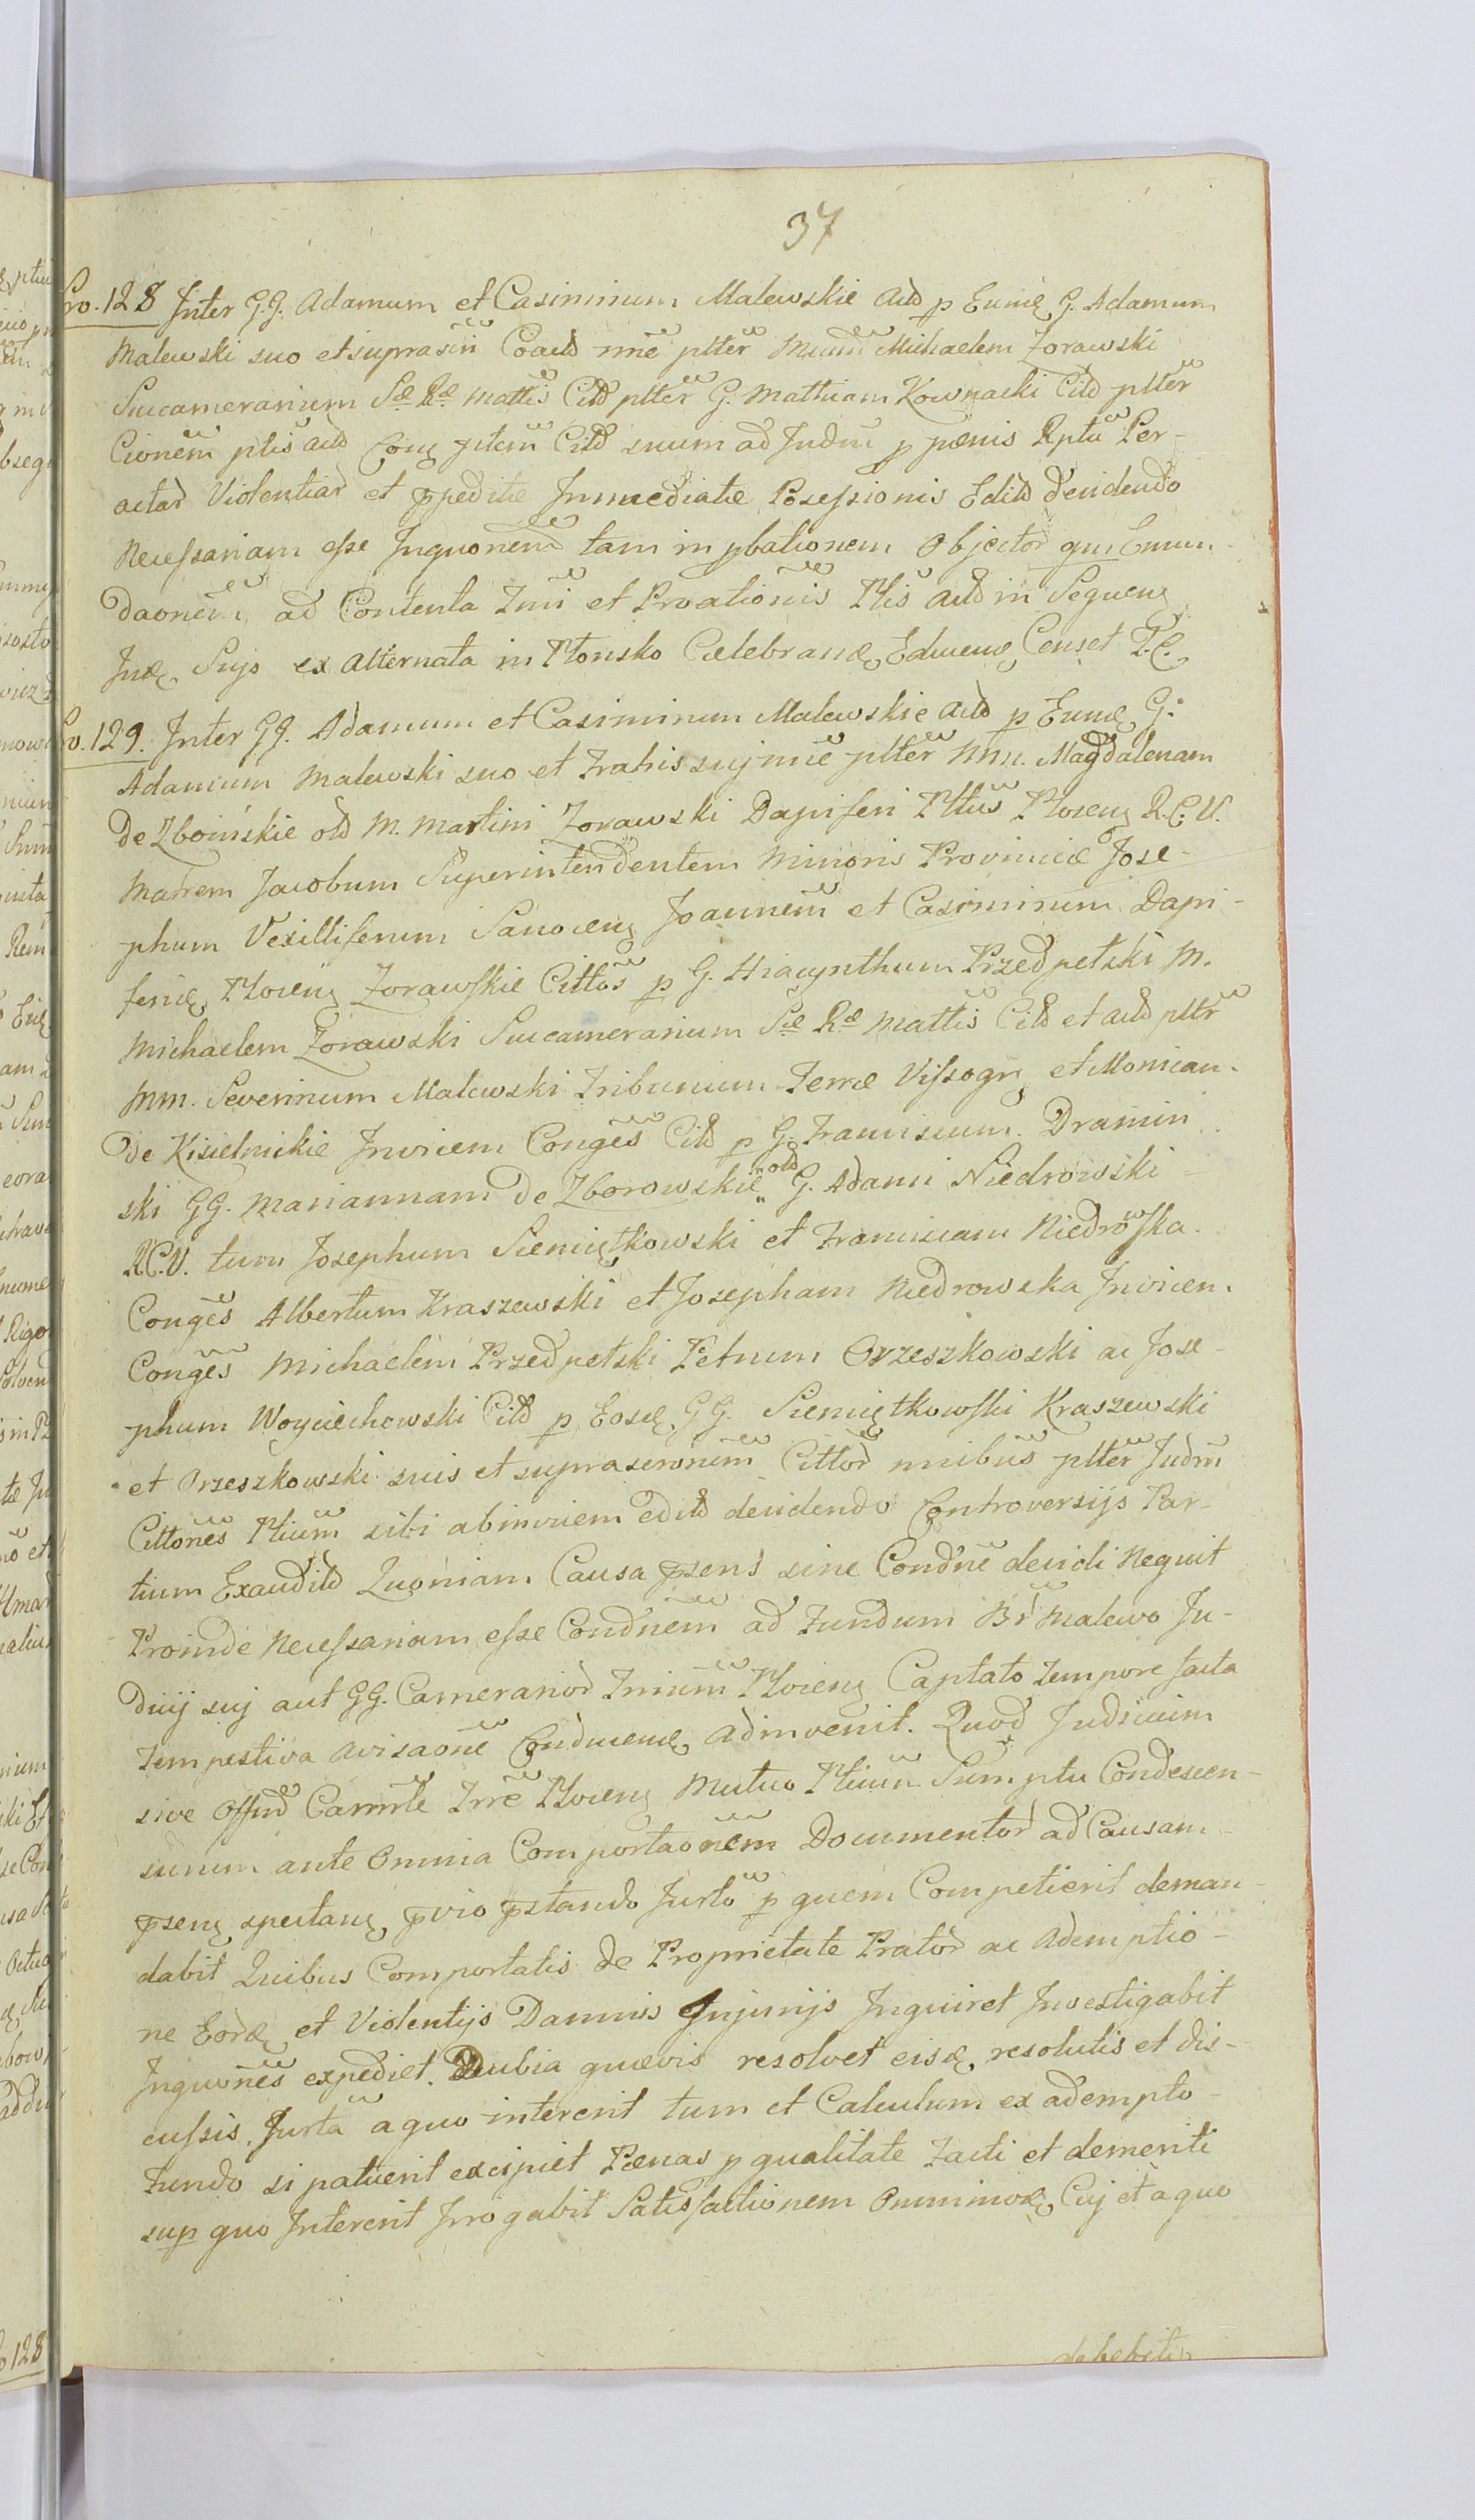 37
Pro. 128 Inter G.G. Adamum et Casimirum Malewskie Actd p Eundę G. Adamum
Malewski suo et suprascri Coactd nne ptter Mundi Michaelem Zorawski
Succamerarium Sæ Ræ Mattis Citd ptter G. Mathiam Kownacki Citd ptter
Cionem ptis actd Conę ptem Citd suum ad Judm p pænis Rptu Per-
actar Violentiar et præpeditæ Immediatæ Possessionis Editd decidendo
Necessariam esse Inquonem tam in pbationem Objector qm Emun-
daonem ad Contenta Inni et Proationis Ptis Actd in Sequenę
Judę Sujs ex alternata in Płonsko Celebrandę Educendę Censet T.C.
Pro. 129. Inter GG. Adamum et Casimirum Malewskie Actd p Eundę G.
Adamum Malewski suo et Fratris suj nne ptter Mm. Magdalenam
De Zboinskie old M. Martini Zorawski Dapiferi Pttus Plocenę R.C.V.
Matrem Jacobum Superintendentem Minoris Provinciæ Jose-
phum Vexilliferum Sanocenę Joannem et Casimirum Dapi-
feridę Plocenę Zorawskie Cittos p G. Hiacynthum Przedpełski M.
Michaelem Zorawski Succamerarium Sæ Ræ Mattis Citd et actd pttr
Mm. Severinum Malewski Tribunum Terræ Vissogrę et Monican.
De Kisielnickie Invicem Conges Citd p G. Franciscum Dramin
ski GG. Mariannam De Zborowskie old G. Adami Niedrowski -
R.C.V. tum Josephum Siemiątkowski et Franciscam Niedrowska.
Conges Albertum Kraszewski et Josepham Niedrowska Invicem.
Conges Michaelem Przedpełski Petrum Orzeszkowski ac Jose-
phum Woyciechowski Citd p Eosdę GG. Siemiątkowski Kraszewski
et Orzeszkowski suis et suprascronem Cittor nnibus ptter Judm
Cittones Ptium sibi abinvicem editd decidendo Controversijs Par-
tium Exauditd Quoniam Causa præsens sine Condne decidi Nequit
Proinde Necessariam esse Condnem ad Fundum Br Malewo Ju-
dicij suj aut GG. Camerarior Trrium Plocenę Captato tempore facta
tempestiva avisaone Conducendę adinvenit. Quod Judicium
sive Offid Camrle Trre Plocenę Mutuo Ptium Sumptu Condescen-
surum ante Omnia Comportaonem Documentor ad Causam
præsenę spectanę prævio præstando Jurto p quem Competierit deman-
dabit Quibus Comportatis de Proprietate Prator ac Ademptio-
ne Eordę et Violentijs Damnis Injurijs Inquiret Investigabit
Inquiones expediet. Dubia quævis resolvet eisdę resolutis et dis-
cussis. Jurta a quo intererit tum et Calculum ex adempto-
Fundo si patuerit excipiet Pænas p qualitate Facti et demeriti
sup quo Intererit Irrogabit Satisfactionem Omnimodę Cuj et a quo
debebitr